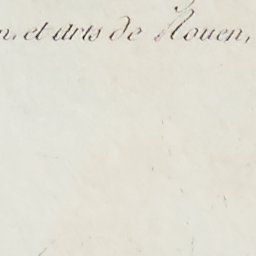 n. et arts de Rouen,